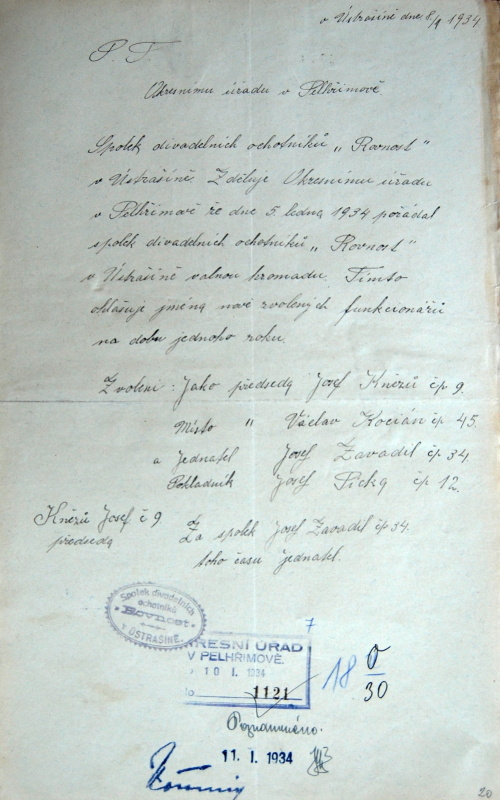 v Ústrašíně dne 8/1 1934
P. T.
Okresnímu úřadu v Pelhřimově.
Spolek divadelních ochotníků „Rovnost"
v Ústrašíně. Zděluje Okresnímu úřadu
v Pelhřimově že dne 5. ledna 1934 pořádal
spolek divadelních ochotníků „Rovnost"
v Ústrašíně valnou hromadu. Tímto
ohlašuje jména nově zvolených funkcionářů
na dobu jednoho roku.
Zvoleni: Jako předseda Josef Kněžů čp 9.
Místo " Václav Kocián čp. 45.
a jednatel Josef Zavadil čp. 34.
Pokladník Josef Picka čp 12.
Kněžů Josef č 9
předseda
Za spolek Josef Zavadil čp 34.
toho času jednatel.
Spolek divadelních
ochotníků
Rovnost
v ÚSTRAŠÍNĚ.
OKRESNÍ ÚŘAD
V PELHŘIMOVĚ.
10 I. 1934
1121
7
18 0/30
Poznamenáno.
11. I. 1934
20